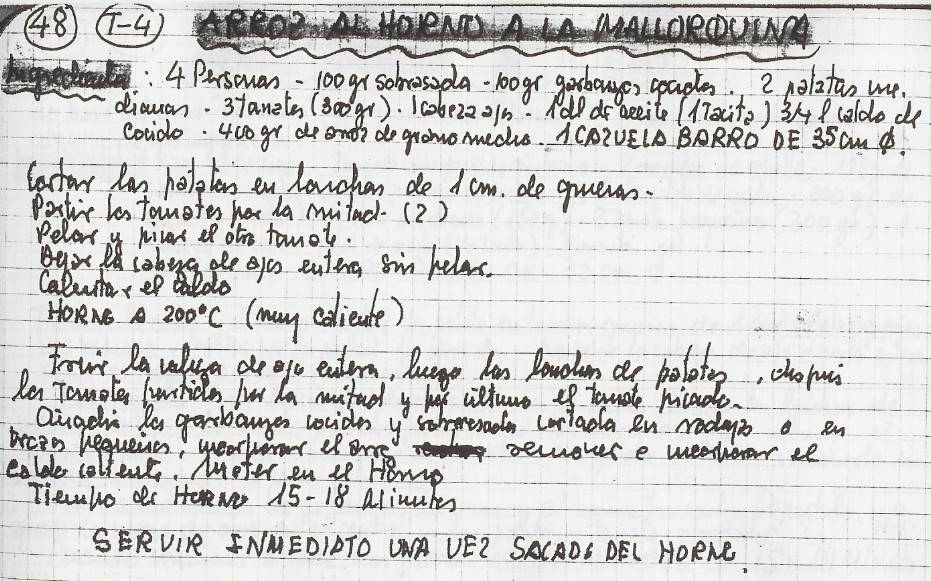 48 T-4 ARROZ AL HORNO A LA MALLORQUINA
Ingredientes: 4 Personas - 100 gr sobrasada - 100 gr garbanzos cocidos. 2 patatas me-
dianas - 3 tomates (300 gr) - 1 cabeza ajos - 1 dl de aceite (1 Tacita) 3/4 l caldo de
Cocido - 400 gr de arroz de grano medio. 1 CAZUELA BARRO DE 35 cm Ø.
Cortar las patatas en lonchas de 1 cm. de grueras.
Partir los tomates por la mitad. (2)
Pelar y picar el otro tomate.
Dejar la cabeza de ajos entera sin pelar.
Calentar el caldo
HORNO A 200°C (muy caliente)
Freir la cabeza de ajo entera, luego las lonchas de patatas, despues
los Tomates partidos por la mitad y por último el tomate picado.
Añadir los garbanzos cocidos y sobrasada cortada en rodajas o en
trozos pequeños, incorporar el arroz remover e incorporar el
caldo caliente. Meter en el Horno
Tiempo de HORNO 15-18 Minutos
SERVIR INMEDIATO UNA VEZ SACADO DEL HORNO.